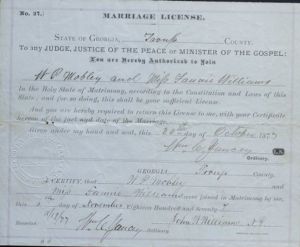 No. 37.
MARRIAGE LICENSE.
STATE OF GEORGIA, Troup COUNTY.
To any JUDGE, JUSTICE OF THE PEACE or MINISTER OF THE GOSPEL:
You are Hereby Authorized to Join
W. P. Mobley and Miss Fannie Williams
In the Holy State of Matrimony, according to the Constitution and Laws of this
State; and for so doing, this shall be your sufficient License.
And you are hereby required to return this License to me, with your Certificate
hereon of the fact and date of the Marriage.
Given under my hand and seal, this day of October 1877
Wm C. Yancey
Ordinary.
GEORGIA, Troup County,
I CERTIFY, that W. P. Mobley
and Miss Fannie Williams were joined in Matrimony by me,
this day of November Eighteen Hundred and Seventy
Recorded John W. Williams
Wm C. Yancey